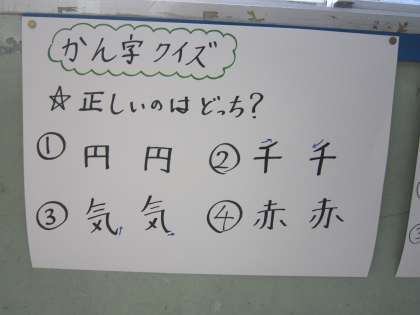 かん字クイズ
☆正しいのはどっち?
① 円 円 ② 千 千
③ 気 気 ④ 赤 赤